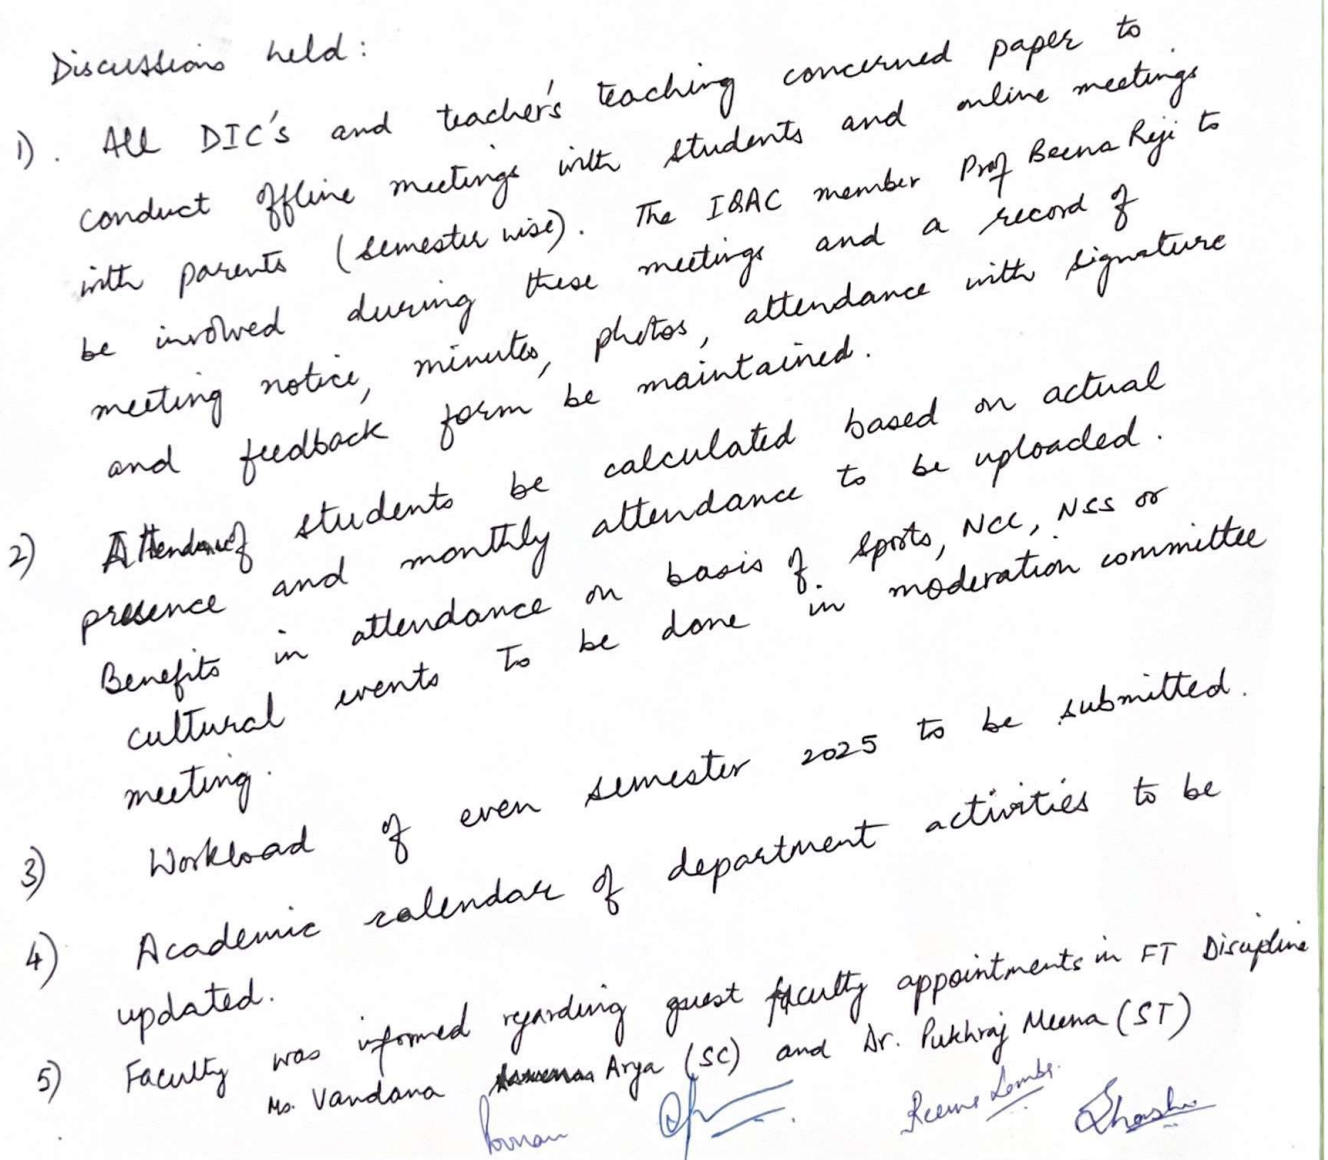 Discussions held:
1). All DIC's and teacher's teaching concerned paper to
conduct offline meetings with students and online meetings
with parents (semester wise). The IQAC member Prof Beena Reji to
be involved during these meetings and a record of
meeting notice, minutes, photos, attendance with signature
and feedback form be maintained.
2) Attendance of students be calculated based on actual
presence and monthly attendance to be uploaded.
Benefits in attendance on basis of sports, NCC, NSS or
cultural events to be done in moderation committee
meeting.
3) Workload of even semester 2025 to be submitted.
4) Academic calendar of department activities to be
updated.
5) Faculty was informed regarding guest faculty appointments in FT Discipline
Ms. Vandana Arya (SC) and Dr. Pukhraj Meena (ST)
Poonam